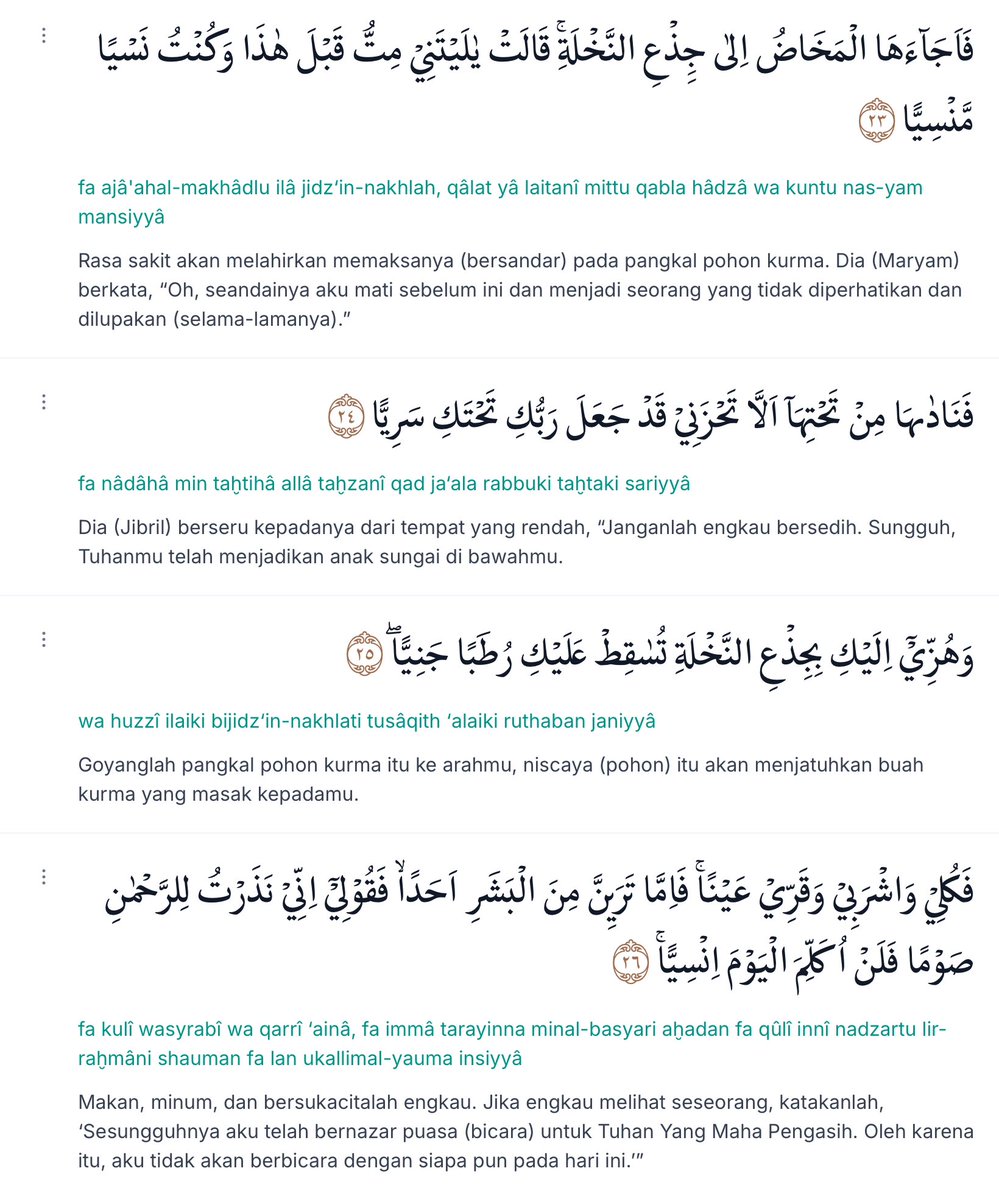 فَاَجَاۤءَهَا الْمَخَاضُ اِلٰى جِذْعِ النَّخْلَةِۚ قَالَتْ يٰلَيْتَنِيْ مِتُّ قَبْلَ هٰذَا وَكُنْتُ نَسْيًا
مَّنْسِيًّا ٢٣
fa ajâ'ahal-makhâdlu ilâ jidz‘in-nakhlah, qâlat yâ laitanî mittu qabla hâdzâ wa kuntu nas-yam
mansiyyâ
Rasa sakit akan melahirkan memaksanya (bersandar) pada pangkal pohon kurma. Dia (Maryam)
berkata, “Oh, seandainya aku mati sebelum ini dan menjadi seorang yang tidak diperhatikan dan
dilupakan (selama-lamanya).”
فَنَادٰىهَا مِنْ تَحْتِهَآ اَلَّا تَحْزَنِيْ قَدْ جَعَلَ رَبُّكِ تَحْتَكِ سَرِيًّا ٢٤
fa nâdâhâ min taḫtihâ allâ taḫzanî qad ja‘ala rabbuki taḫtaki sariyyâ
Dia (Jibril) berseru kepadanya dari tempat yang rendah, “Janganlah engkau bersedih. Sungguh,
Tuhanmu telah menjadikan anak sungai di bawahmu.
وَهُزِّيْٓ اِلَيْكِ بِجِذْعِ النَّخْلَةِ تُسٰقِطْ عَلَيْكِ رُطَبًا جَنِيًّاۖ ٢٥
wa huzzî ilaiki bijidz‘in-nakhlati tusâqith ‘alaiki ruthaban janiyyâ
Goyanglah pangkal pohon kurma itu ke arahmu, niscaya (pohon) itu akan menjatuhkan buah
kurma yang masak kepadamu.
فَكُلِيْ وَاشْرَبِيْ وَقَرِّيْ عَيْنًاۚ فَاِمَّا تَرَيِنَّ مِنَ الْبَشَرِ اَحَدًاۙ فَقُوْلِيْٓ اِنِّيْ نَذَرْتُ لِلرَّحْمٰنِ
صَوْمًا فَلَنْ اُكَلِّمَ الْيَوْمَ اِنْسِيًّاۚ ٢٦
fa kulî wasyrabî wa qarrî ‘ainâ, fa immâ tarayinna minal-basyari aḫadan fa qûlî innî nadzartu lir-
raḫmâni shauman fa lan ukallimal-yauma insiyyâ
Makan, minum, dan bersukacitalah engkau. Jika engkau melihat seseorang, katakanlah,
‘Sesungguhnya aku telah bernazar puasa (bicara) untuk Tuhan Yang Maha Pengasih. Oleh karena
itu, aku tidak akan berbicara dengan siapa pun pada hari ini.’”